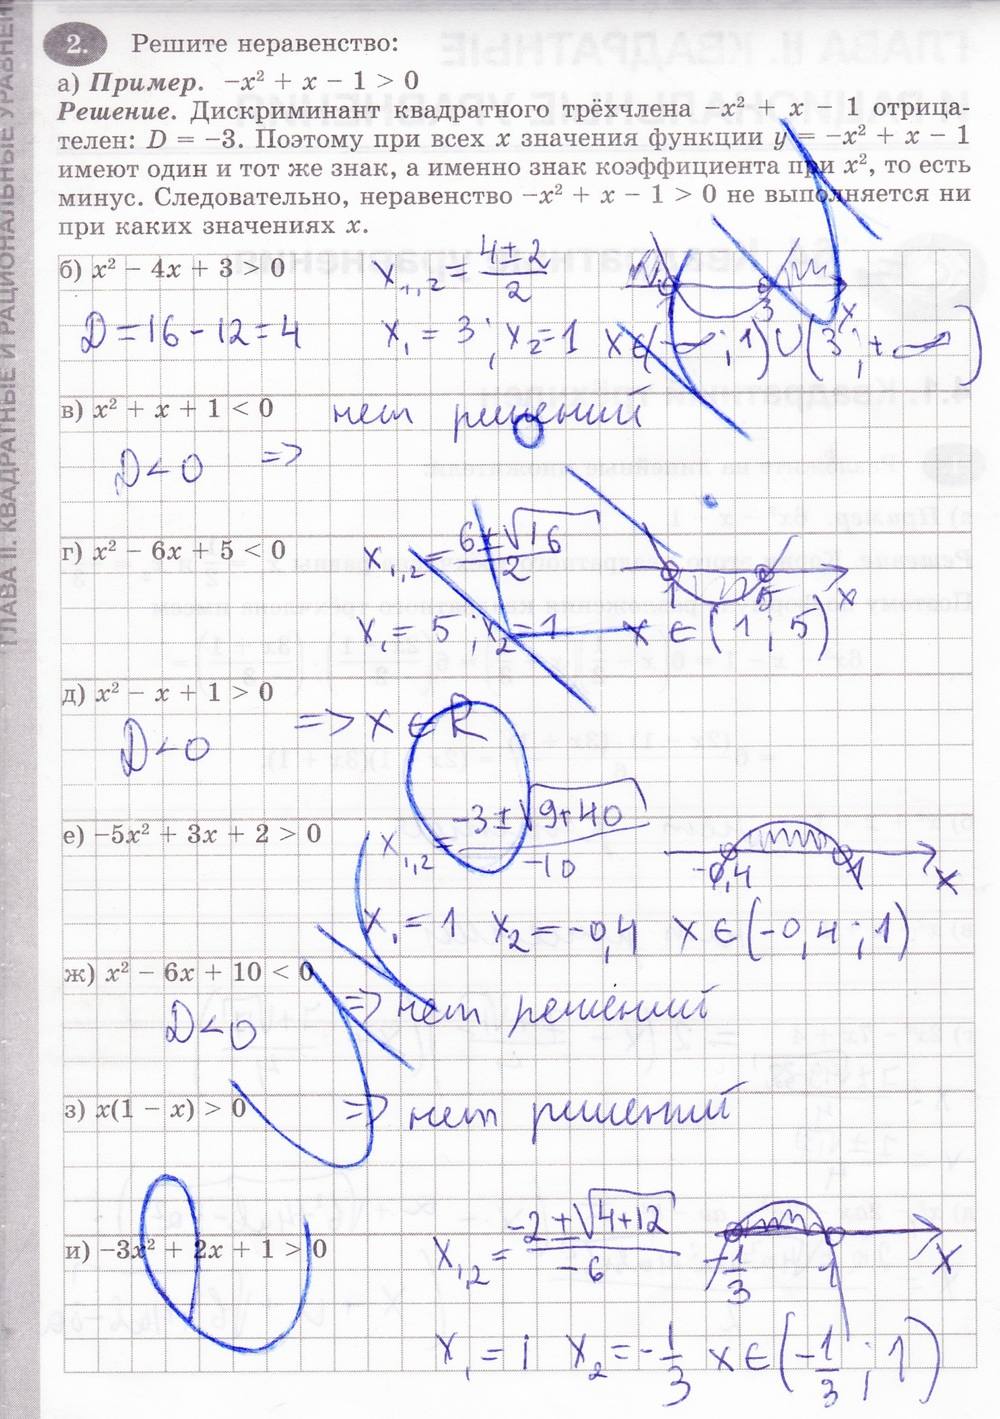 ГЛАВА II. КВАДРАТНЫЕ И РАЦИОНАЛЬНЫЕ УРАВНЕНИ
2. Решите неравенство:
а) Пример. −x² + x − 1 > 0
Решение. Дискриминант квадратного трёхчлена −x² + x − 1 отрица-
телен: D = −3. Поэтому при всех x значения функции y = −x² + x − 1
имеют один и тот же знак, а именно знак коэффициента при x², то есть
минус. Следовательно, неравенство −x² + x − 1 > 0 не выполняется ни
при каких значениях x.
б) x² − 4x + 3 > 0 x₁,₂ = (4±2)/2 1 3 x
D = 16 − 12 = 4 x₁ = 3; x₂ = 1 x∈(−∞; 1)∪(3; +∞)
в) x² + x + 1 < 0 нет решений
D<0 =>
г) x² − 6x + 5 < 0 x₁,₂ = (6±√16)/2 1 5 x
x₁ = 5; x₂ = 1 x ∈ (1; 5)
д) x² − x + 1 > 0
D<0 => x ∈ R
е) −5x² + 3x + 2 > 0 x₁,₂ = (−3±√9+40)/−10 −0,4 1 x
x₁ = 1 x₂ = −0,4 x ∈ (−0,4; 1)
ж) x² − 6x + 10 < 0
D<0 => нет решений
з) x(1 − x) > 0 => нет решений
и) −3x² + 2x + 1 > 0 x₁,₂ = (−2±√4+12)/−6 −1/3 1 x
x₁ = 1 x₂ = −1/3 x∈(−1/3; 1)